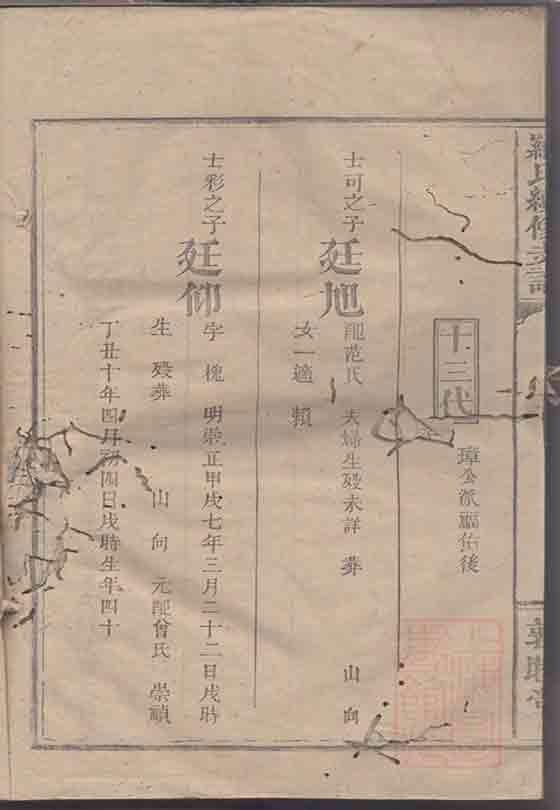 羅氏續修支譜
十三代
璋公派福佑後
士可之子
廷旭
配范氏 夫婦生殁未詳 葬 山 向
女一適 賴
士彩之子
廷仰
字 槐 明崇正甲戌七年三月二十二日戌時
生 殁葬 山 向 元配曾氏 崇禎
丁丑十年四月初四日戌時生年四十